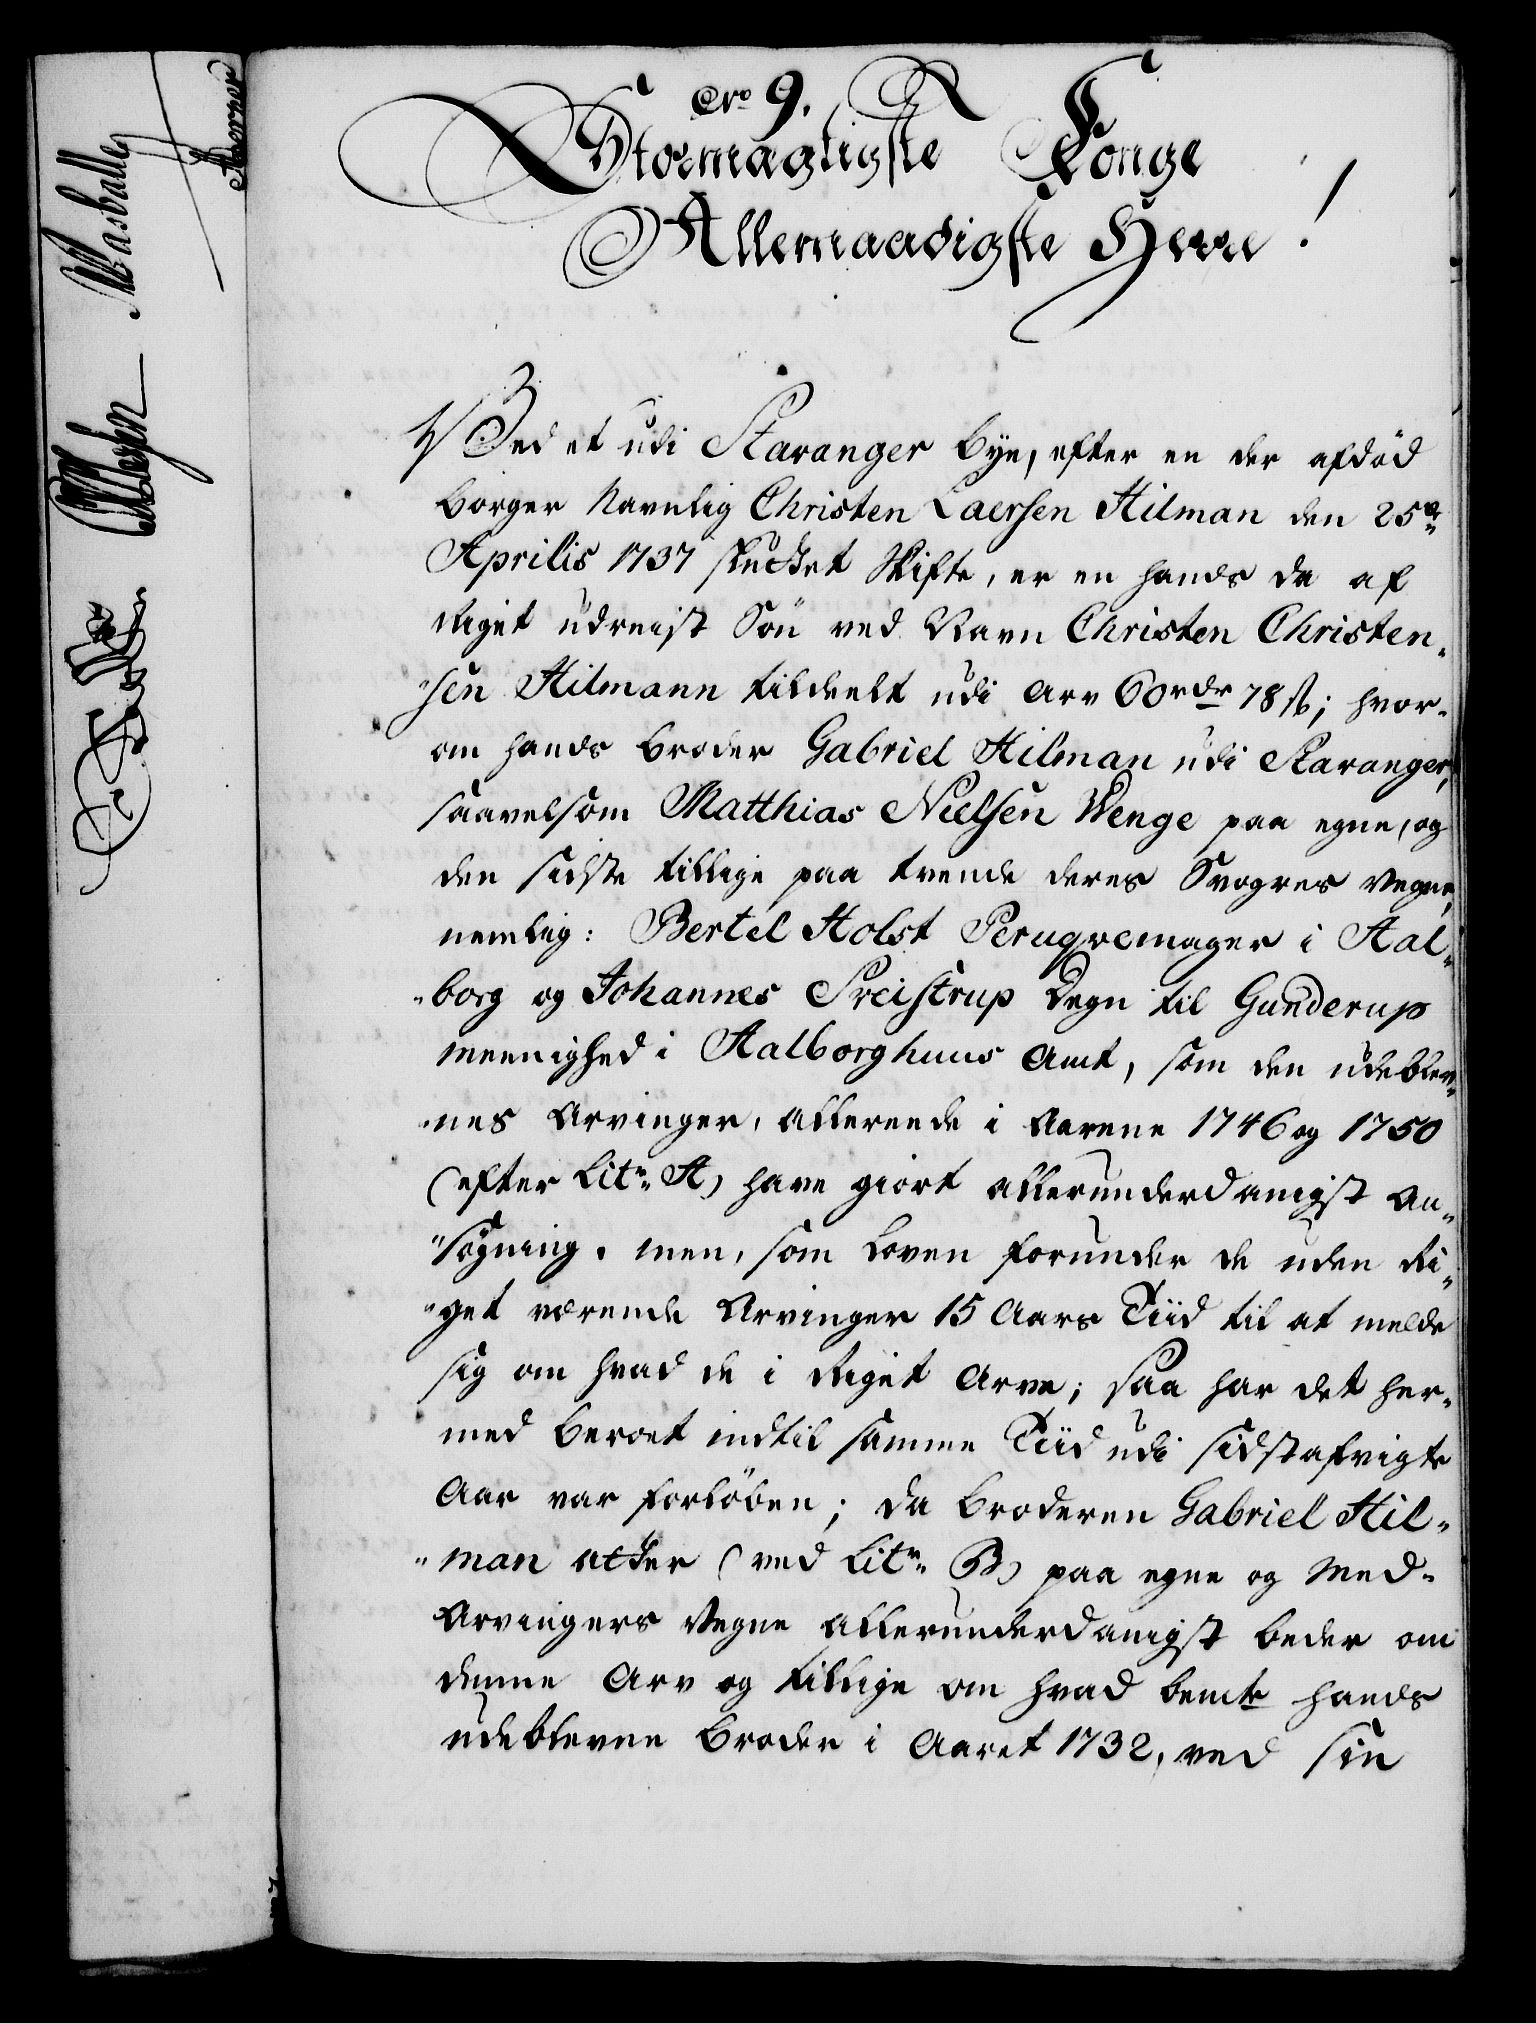 No 9.
Stormægtigste Konge
Allernaadigste Herre!
Ved et udi Stavanger Bye, efter en der afdød
Borger Navnlig Christen Laersen Hilman den 25de
Aprilis 1737 sluttet Skifte, er en hands da af
Riget udreist Søn ved Navn Christen Christen-
sen Hilmann tildeelt udi Arv 60 rdr 78 s; hvor-
om hands Broder Gabriel Hilman udi Stavanger,
saavelsom Matthias Nielsen Wenge paa egne, og
den sidste tillige paa tvende deres Svogres Vegne,
nemlig: Bertel Holst Peruqvemager i Aal-
borg og Johannes Preistrup Degn til Gunderup
meenighed i Aalborghuus Amt, som den udeblev-
nes Arvinger, allereede i Aarene 1746 og 1750
(efter Litr. A) have giort allerunderdanigst An-
søgning. men, som Loven forunder de uden Ri-
get værende Arvinger 15 Aars Tiid til at melde
sig om hvad de i Riget Arve; saa har det her-
med beroet indtil samme Tiid udi sidstafvigte
Aar var forløben; da Broderen Gabriel Hil-
man atter (ved Litr. B) paa egne og Med-
Arvingers Vegne allerunderdanigst beder om
denne Arv og tillige om hvad bemte hands
udeblevne Broder i Aaret 1732, ved sin